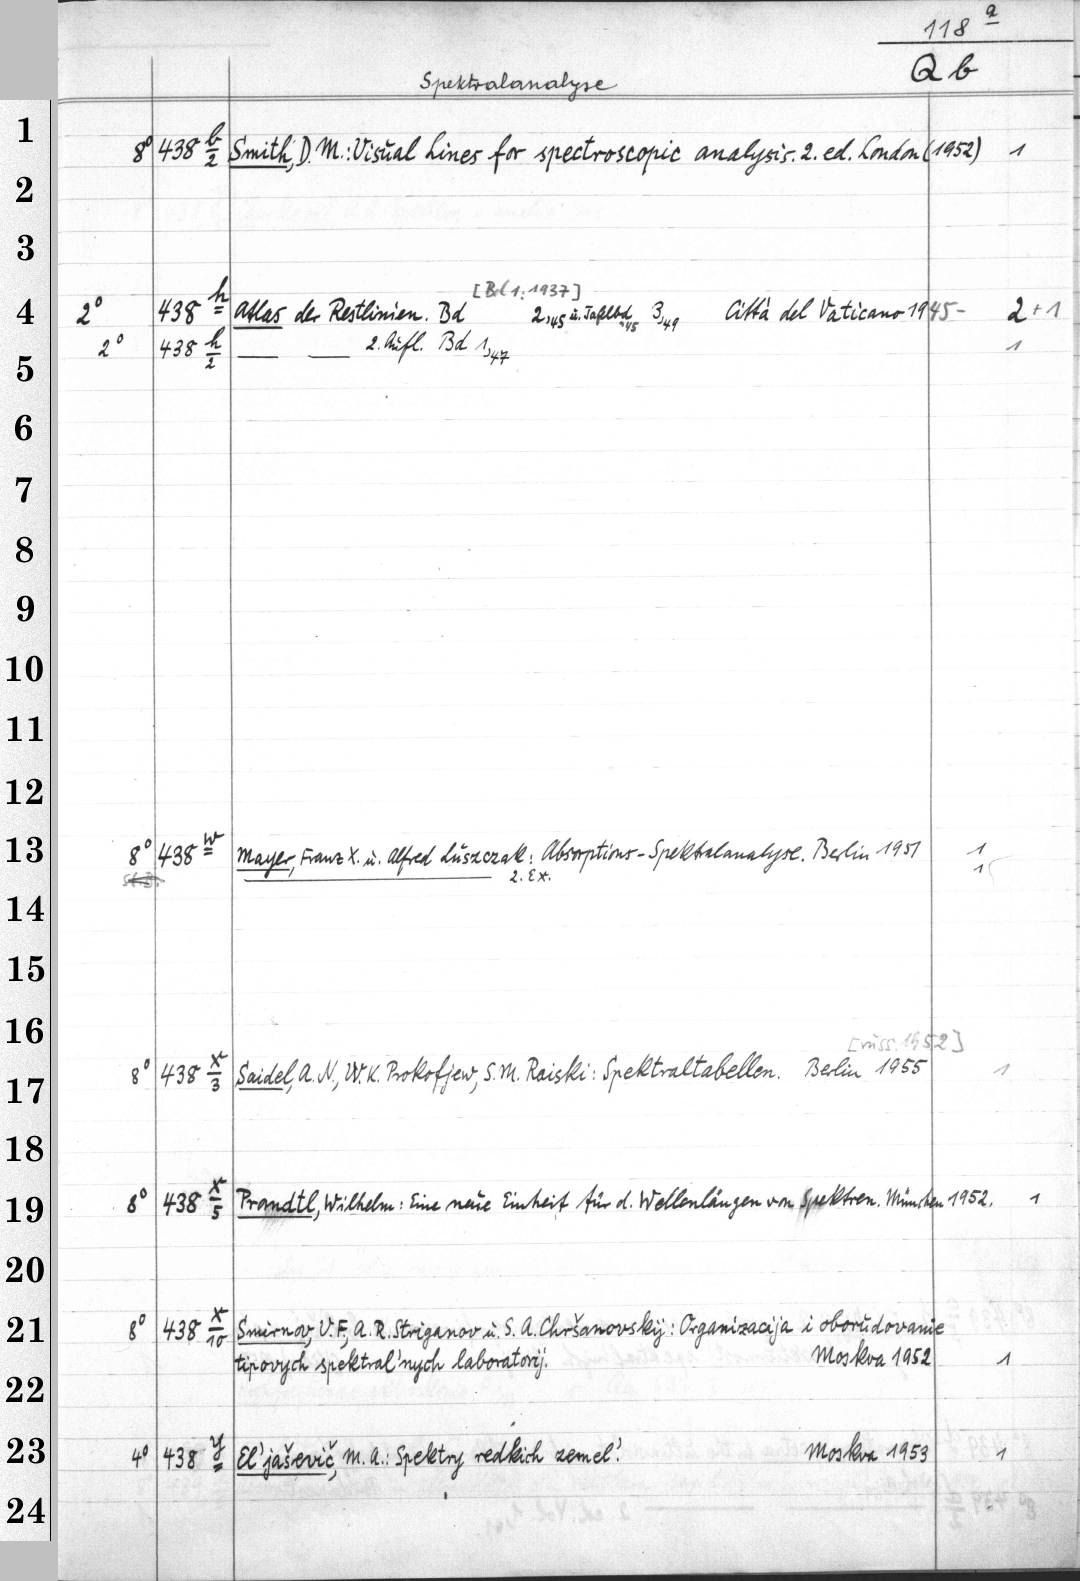 118 a
Q b
Spektralanalyse
1
8° 438 b/2 Smith, D. M.: Visual Lines for spectroscopic analysis. 2. ed. London (1952) 1
2
3
[Bd 1: 1937]
4
2° 438 h Atlas der Restlinien. Bd 2,45 u. Tafelbd,45 3,49 Città del Vaticano 1945- 2+1
2° 438 h/2 — — 2. Aufl. Bd 1,47 1
5
6
7
8
9
10
11
12
13
8° 438 w Mayer, Franz X. u. Alfred Luszczak: Absorptions-Spektralanalyse. Berlin 1951 1
2. Ex. 1
14
15
16
[russ. 1952]
17
8° 438 x/3 Saidel, A. N., W. K. Prokofjew, S. M. Raiski: Spektraltabellen. Berlin 1955 1
18
19
8° 438 x/5 Prandtl, Wilhelm: Eine neue Einheit für d. Wellenlängen von Spektren. München 1952. 1
20
21
8° 438 x/10 Smirnov, V. F., A. R. Striganov u. S. A. Chršanovskij: Organizacija i oborudovanie
tipovych spektral'nych laboratorij. Moskva 1952 1
22
23
4° 438 y El'jaševič, M. A.: Spektry redkich zemel'. Moskva 1953 1
24